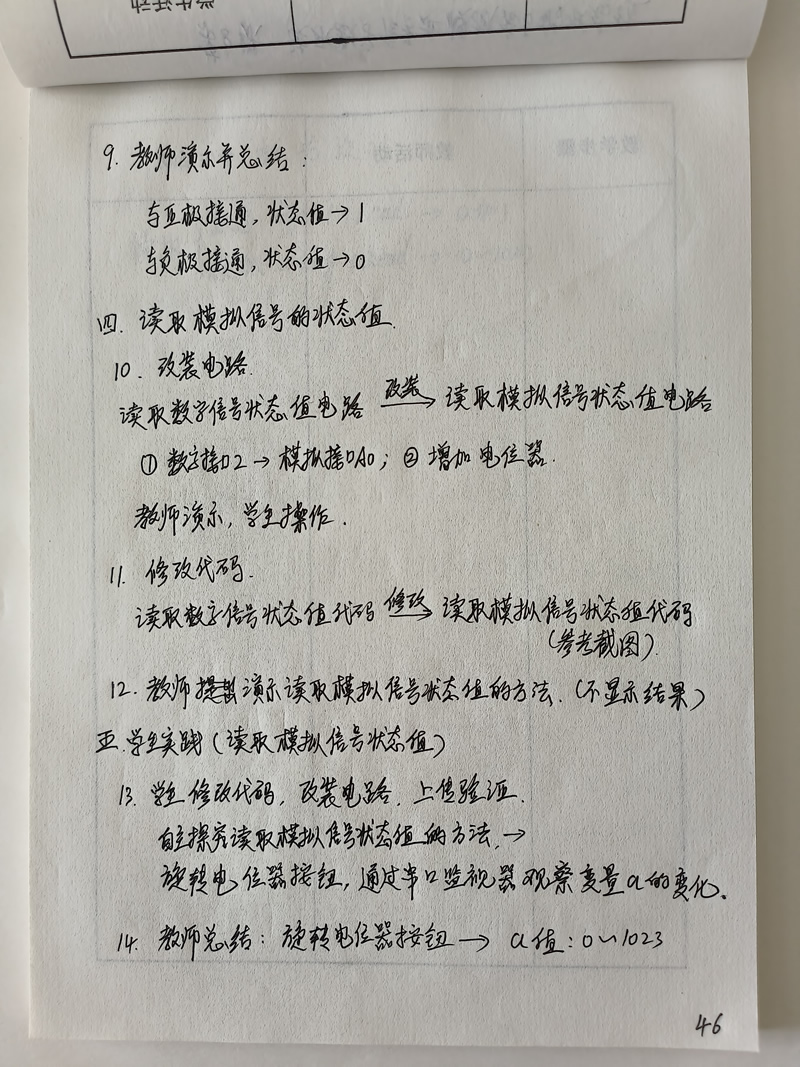 学生活动
9. 教师演示并总结：
与正极接通，状态值→1
与负极接通，状态值→0
四. 读取模拟信号的状态值.
10. 改装电路.
读取数字信号状态值电路 改装→ 读取模拟信号状态值电路
① 数字接口2→模拟接口A0；② 增加电位器.
教师演示，学生操作.
11. 修改代码.
读取数字信号状态值代码 修改→ 读取模拟信号状态值代码
（参考截图）.
12. 教师演示读取模拟信号状态值的方法.（不显示结果）
五. 学生实践（读取模拟信号状态值）
13. 学生修改代码，改装电路，上传验证.
自主探究读取模拟信号状态值的方法.→
旋转电位器按钮，通过串口监视器观察变量a的变化.
14. 教师总结：旋转电位器按钮→ a值：0~1023
46